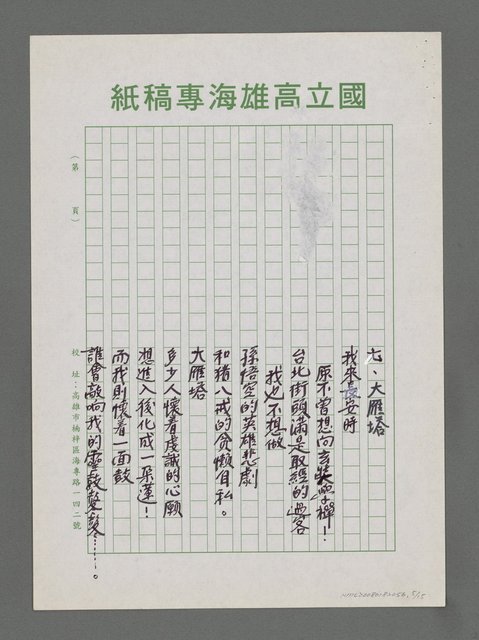 國立高雄海專稿紙
(第　頁)
七、大雁塔
我來長安時
原不曾想向玄奘學禪！
台北街頭滿是取經的過客
我也不想做
孫悟空的英雄悲劇
和豬八戒的貪懶自私。
大雁塔
多少人懷着虔誠的心願
想進入後化成一朵蓮！
而我則懷着一面鼓
誰會敲响我的靈鼓鼕鼕……。
校址：高雄市楠梓區海專路一四二號